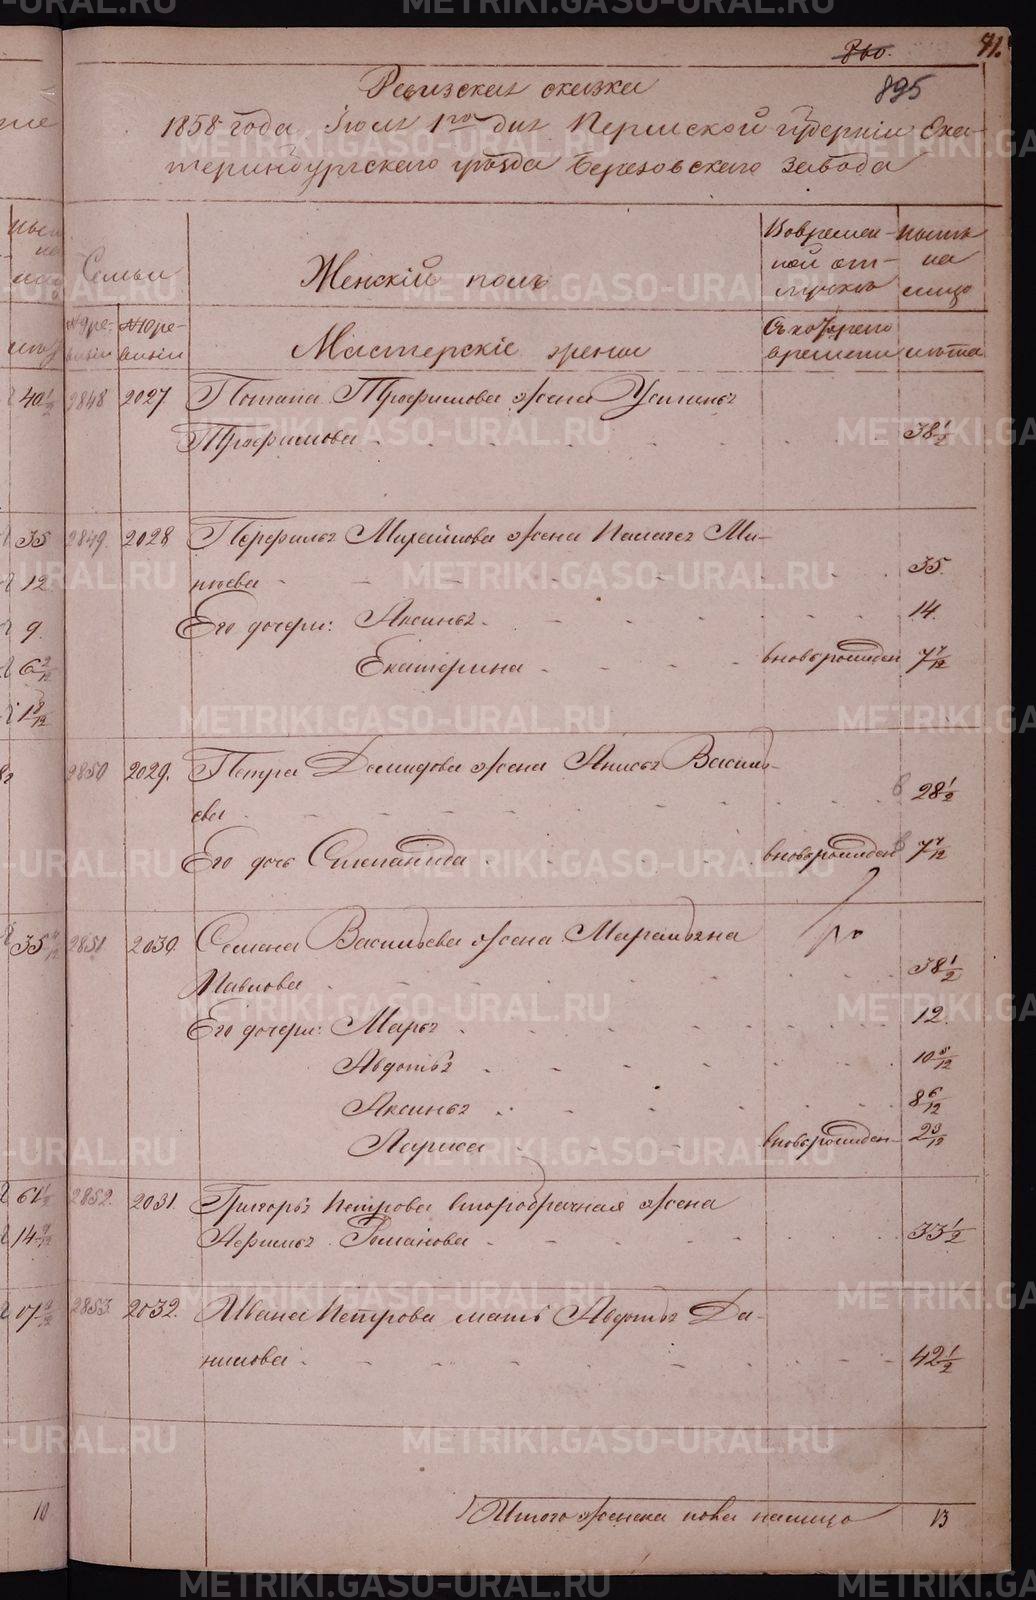 860.
91.
895
Ревизская сказка
1858 года Іюля 1го дня Пермской губерніи Ека-
теринбургскаго уѣзда Березовскаго завода
Семьи
Женскій полъ
Во времен-
ной от-
лучкѣ
нынѣ
на
лицо
№ 9 ре-
визіи
№ 10 ре-
визіи
Мастерскіе жены
Съ котораго
времени
лѣта
40 1/2 2848 2027 Потапа Трофимова жена Устинья
Трофимова 38 1/2
35 2849. 2028 Перфилья Михайлова жена Палагея Ми-
12
нѣева 35.
9. Его дочери: Аксинья 14.
6 2/12 Екатерина вновьрожден 7 7/12
1 8/12
2850 2029. Петра Демидова жена Анисья Василь-
ева 28 1/2
Его дочь Степанида вновьрожден 7 7/12
35 2851 2030 Семена Васильева жена Мареміяна
Павлова 38 1/2
Его дочери: Марья 12.
Авдотья 10 8/12
Аксинья 8 6/12
Лариса вновьрожден 2 3/12
61 1/2 2852. 2031 Григорья Петрова второбрачная жена
14 Афимья Романова 33 1/2
2853. 2032. Ивана Петрова мать Авдотья Да-
нилова 42 1/2
10
Итого женска пола налицо 13
METRIKI.GASO-URAL.RU